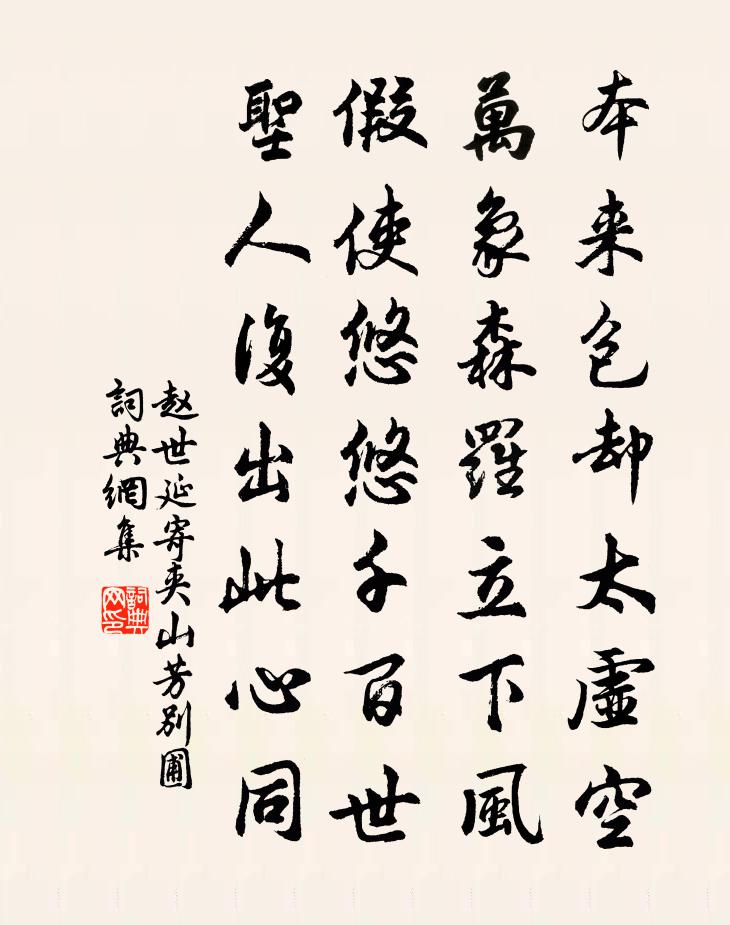 本来包却太虛空
萬象森羅立下風
假使悠悠千百世
聖人復出此心同
赵世延寄夹山芳别圃
詞典網集
詞典网印